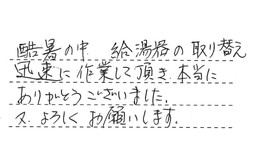 酷暑の中 給湯器の取り替え
迅速に作業して頂き、本当に
ありがとうございました。
又、よろしくお願いします。